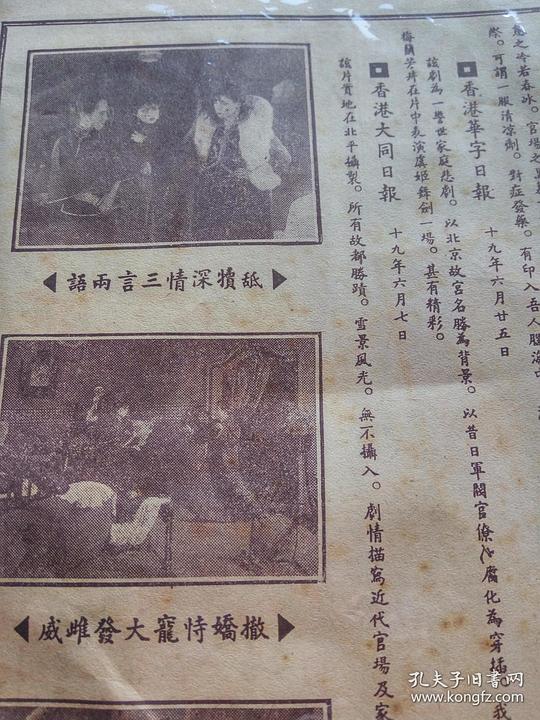 之冷若春冰。官場之
際。可謂一服清凉劑。對症發藥。有印入吾人腦海中
香港華字日報 十九年六月廿五日
該劇為一警世家庭悲劇。以北京故宮名勝為背景。以昔日軍閥官僚之腐化為穿插。我
梅蘭芳并在片中表演虞姬舞劍一場。甚有精彩。
香港大同日報 十九年六月七日
該片實地在北平攝製。所有故都勝蹟。雪景風光。無不攝入。劇情描寫近代官場及家
舐犢深情三言兩語
撒嬌恃寵大發雌威
孔夫子旧书网
www.kongfz.com